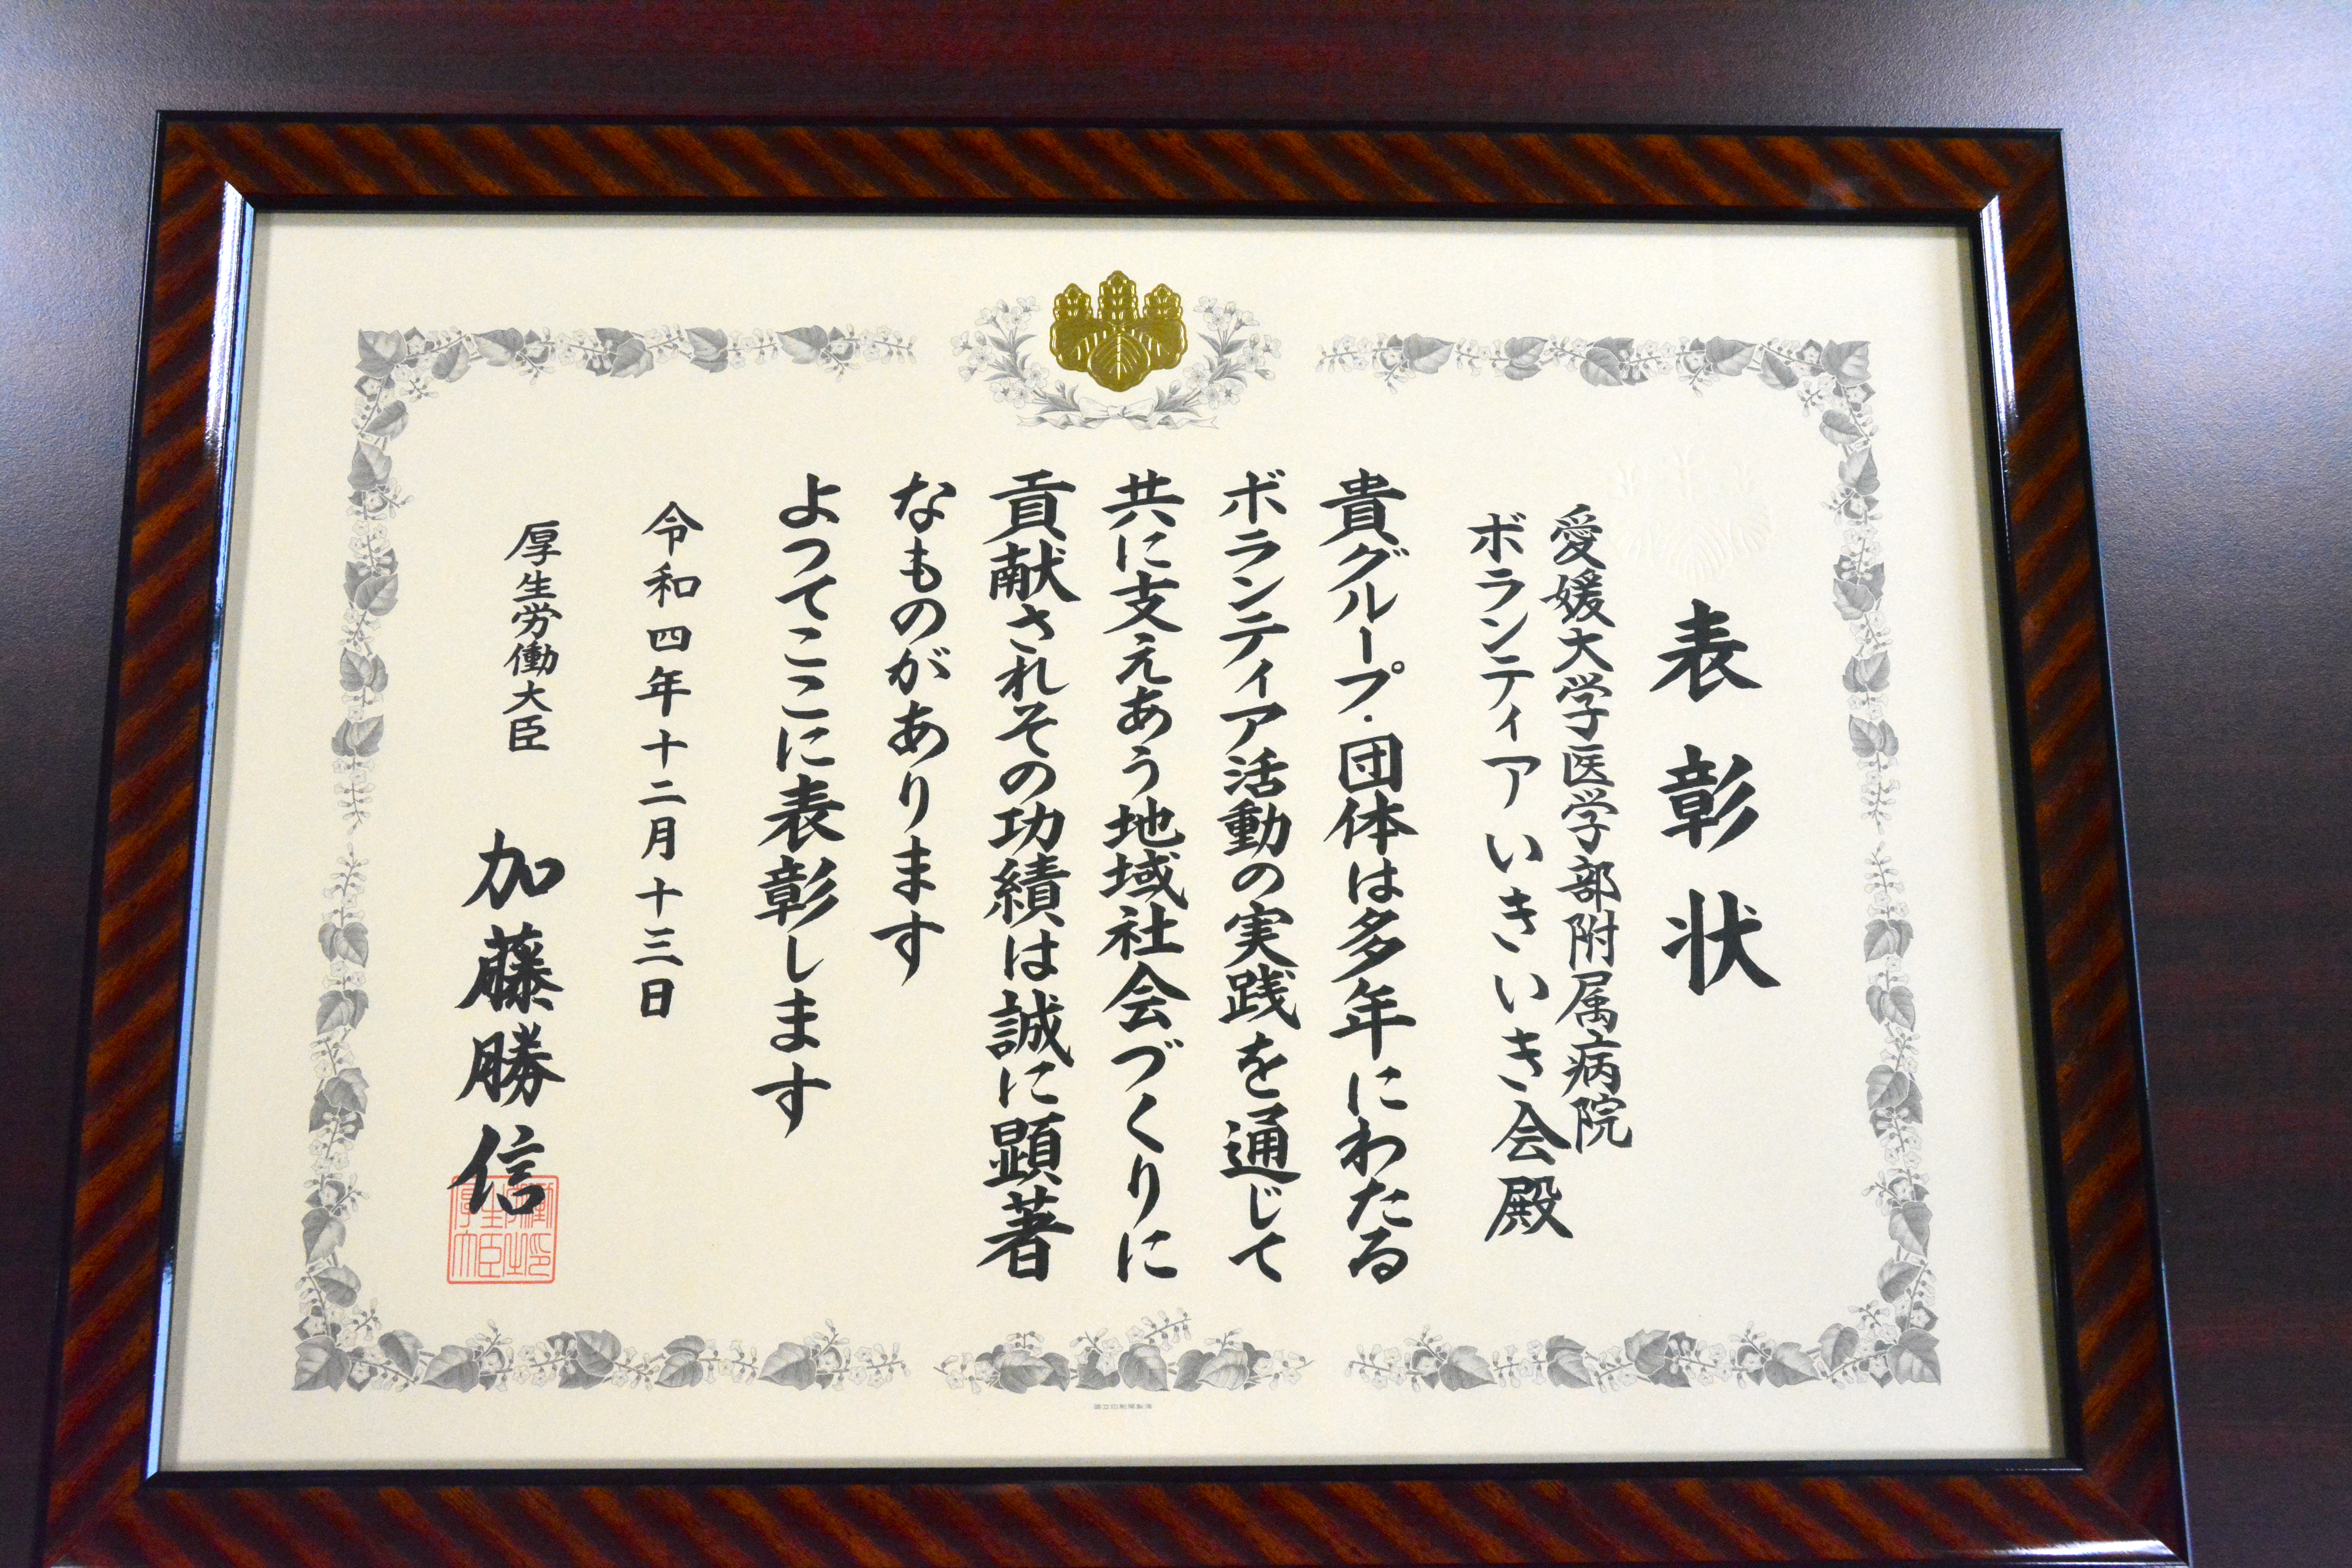 表彰状
愛媛大学医学部附属病院
ボランティアいきいき会殿
貴グループ・団体は多年にわたる
ボランティア活動の実践を通じて
共に支えあう地域社会づくりに
貢献されその功績は誠に顕著
なものがあります
よつてここに表彰します
令和四年十二月十三日
厚生労働大臣 加藤勝信
厚生労働大臣之印